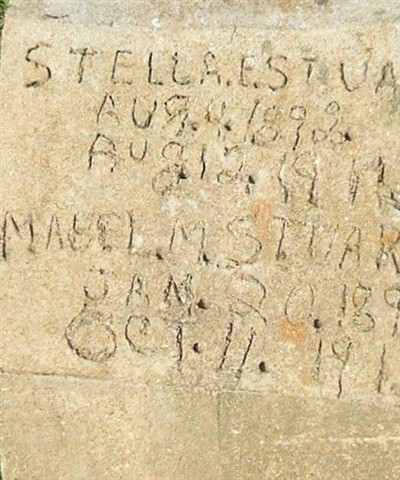 STELLA.E.STUA
AUG.4.1898.
AUG 12. 1911
MABEL.M.STUAR
JAN. 20.189
OCT. 11. 191